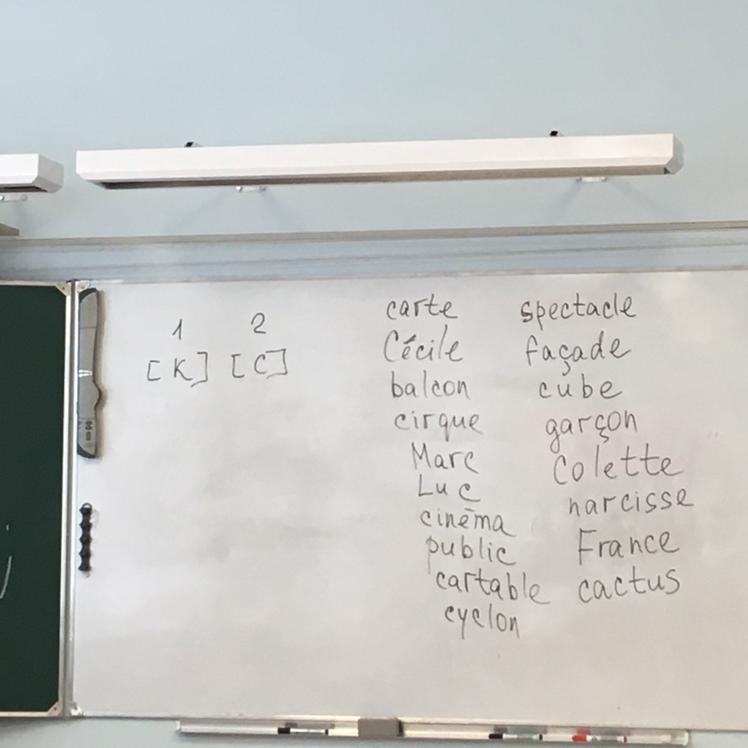 1 2
[K] [C]
carte
Cécile
balcon
cirque
Marc
Luc
cinéma
public
cartable
cyclon
spectacle
façade
cube
garçon
Colette
narcisse
France
cactus